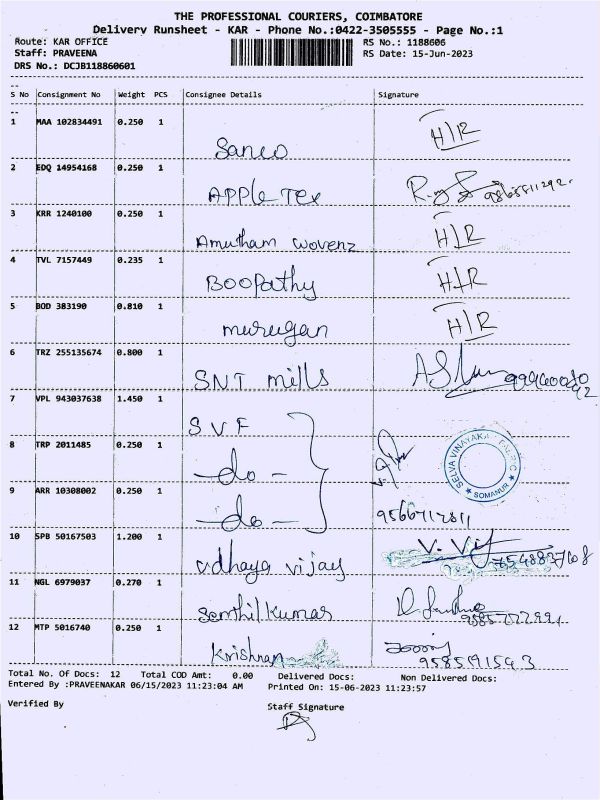 THE PROFESSIONAL COURIERS, COIMBATORE
Delivery Runsheet - KAR - Phone No.:0422-3505555 - Page No.:1
Route: KAR OFFICE RS No.: 1188606
Staff: PRAVEENA RS Date: 15-Jun-2023
DRS No.: DCJB118860601
S No Consignment No Weight PCS Consignee Details Signature
1 MAA 102834491 0.250 1
Sanco H/R
2 EDQ 14954168 0.250 1
APPle Tex
3 KRR 1240100 0.250 1
Amutham wovenz H/R
4 TVL 7157449 0.235 1
Boopathy H/R
5 BOD 383190 0.810 1
murugan H/R
6 TRZ 255135674 0.800 1
SNT mills
7 VPL 943037638 1.450 1
SVF
8 TRP 2011485 0.250 1
-do-
SELVA VINAYAKA FABRIC
SOMANUR
9 ARR 10308002 0.250 1
-do- 9566717811
10 SPB 50167503 1.200 1
Udhaya vijay
11 NGL 6979037 0.270 1
Senthilkumar
12 MTP 5016740 0.250 1
Krishnan
Total No. Of Docs: 12 Total COD Amt: 0.00 Delivered Docs: Non Delivered Docs:
Entered By :PRAVEENAKAR 06/15/2023 11:23:04 AM Printed On: 15-06-2023 11:23:57
Verified By Staff Signature